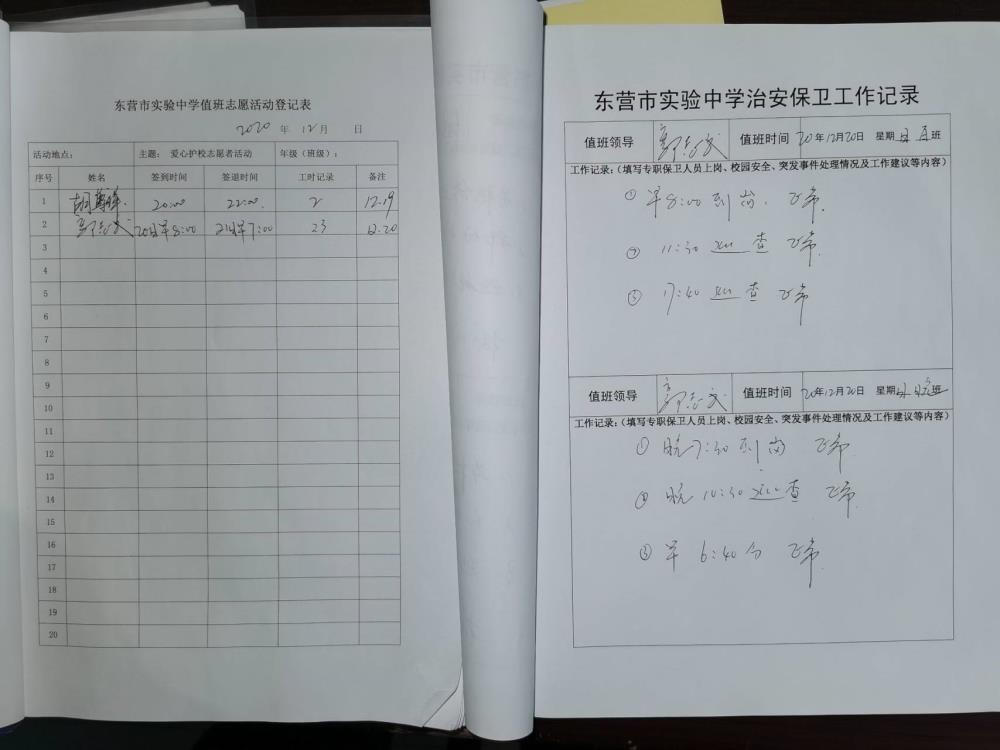 东营市实验中学值班志愿活动登记表
2020 年 12 月 日
活动地点: 主题: 爱心护校志愿者活动 年级（班级）:
序号 姓名 签到时间 签退时间 工时记录 备注
1 20:00 22:00. 2 12.19
2 郭志武 20日早8:00 21日早7:00 23 12.20
3
4
5
6
7
8
9
10
11
12
13
14
15
16
17
18
19
20
东营市实验中学治安保卫工作记录
值班领导 郭志武 值班时间 20年12月20日 星期日 白班
工作记录:（填写专职保卫人员上岗、校园安全、突发事件处理情况及工作建议等内容）
① 早8:00 到岗. 正常.
② 11:30 巡查 正常.
③ 17:40 巡查 正常
值班领导 郭志武 值班时间 20年12月20日 星期日 晚班
工作记录:（填写专职保卫人员上岗、校园安全、突发事件处理情况及工作建议等内容）
① 晚7:30 到岗 正常.
② 晚 10:30 巡查 正常.
③ 早 6:40分 正常.